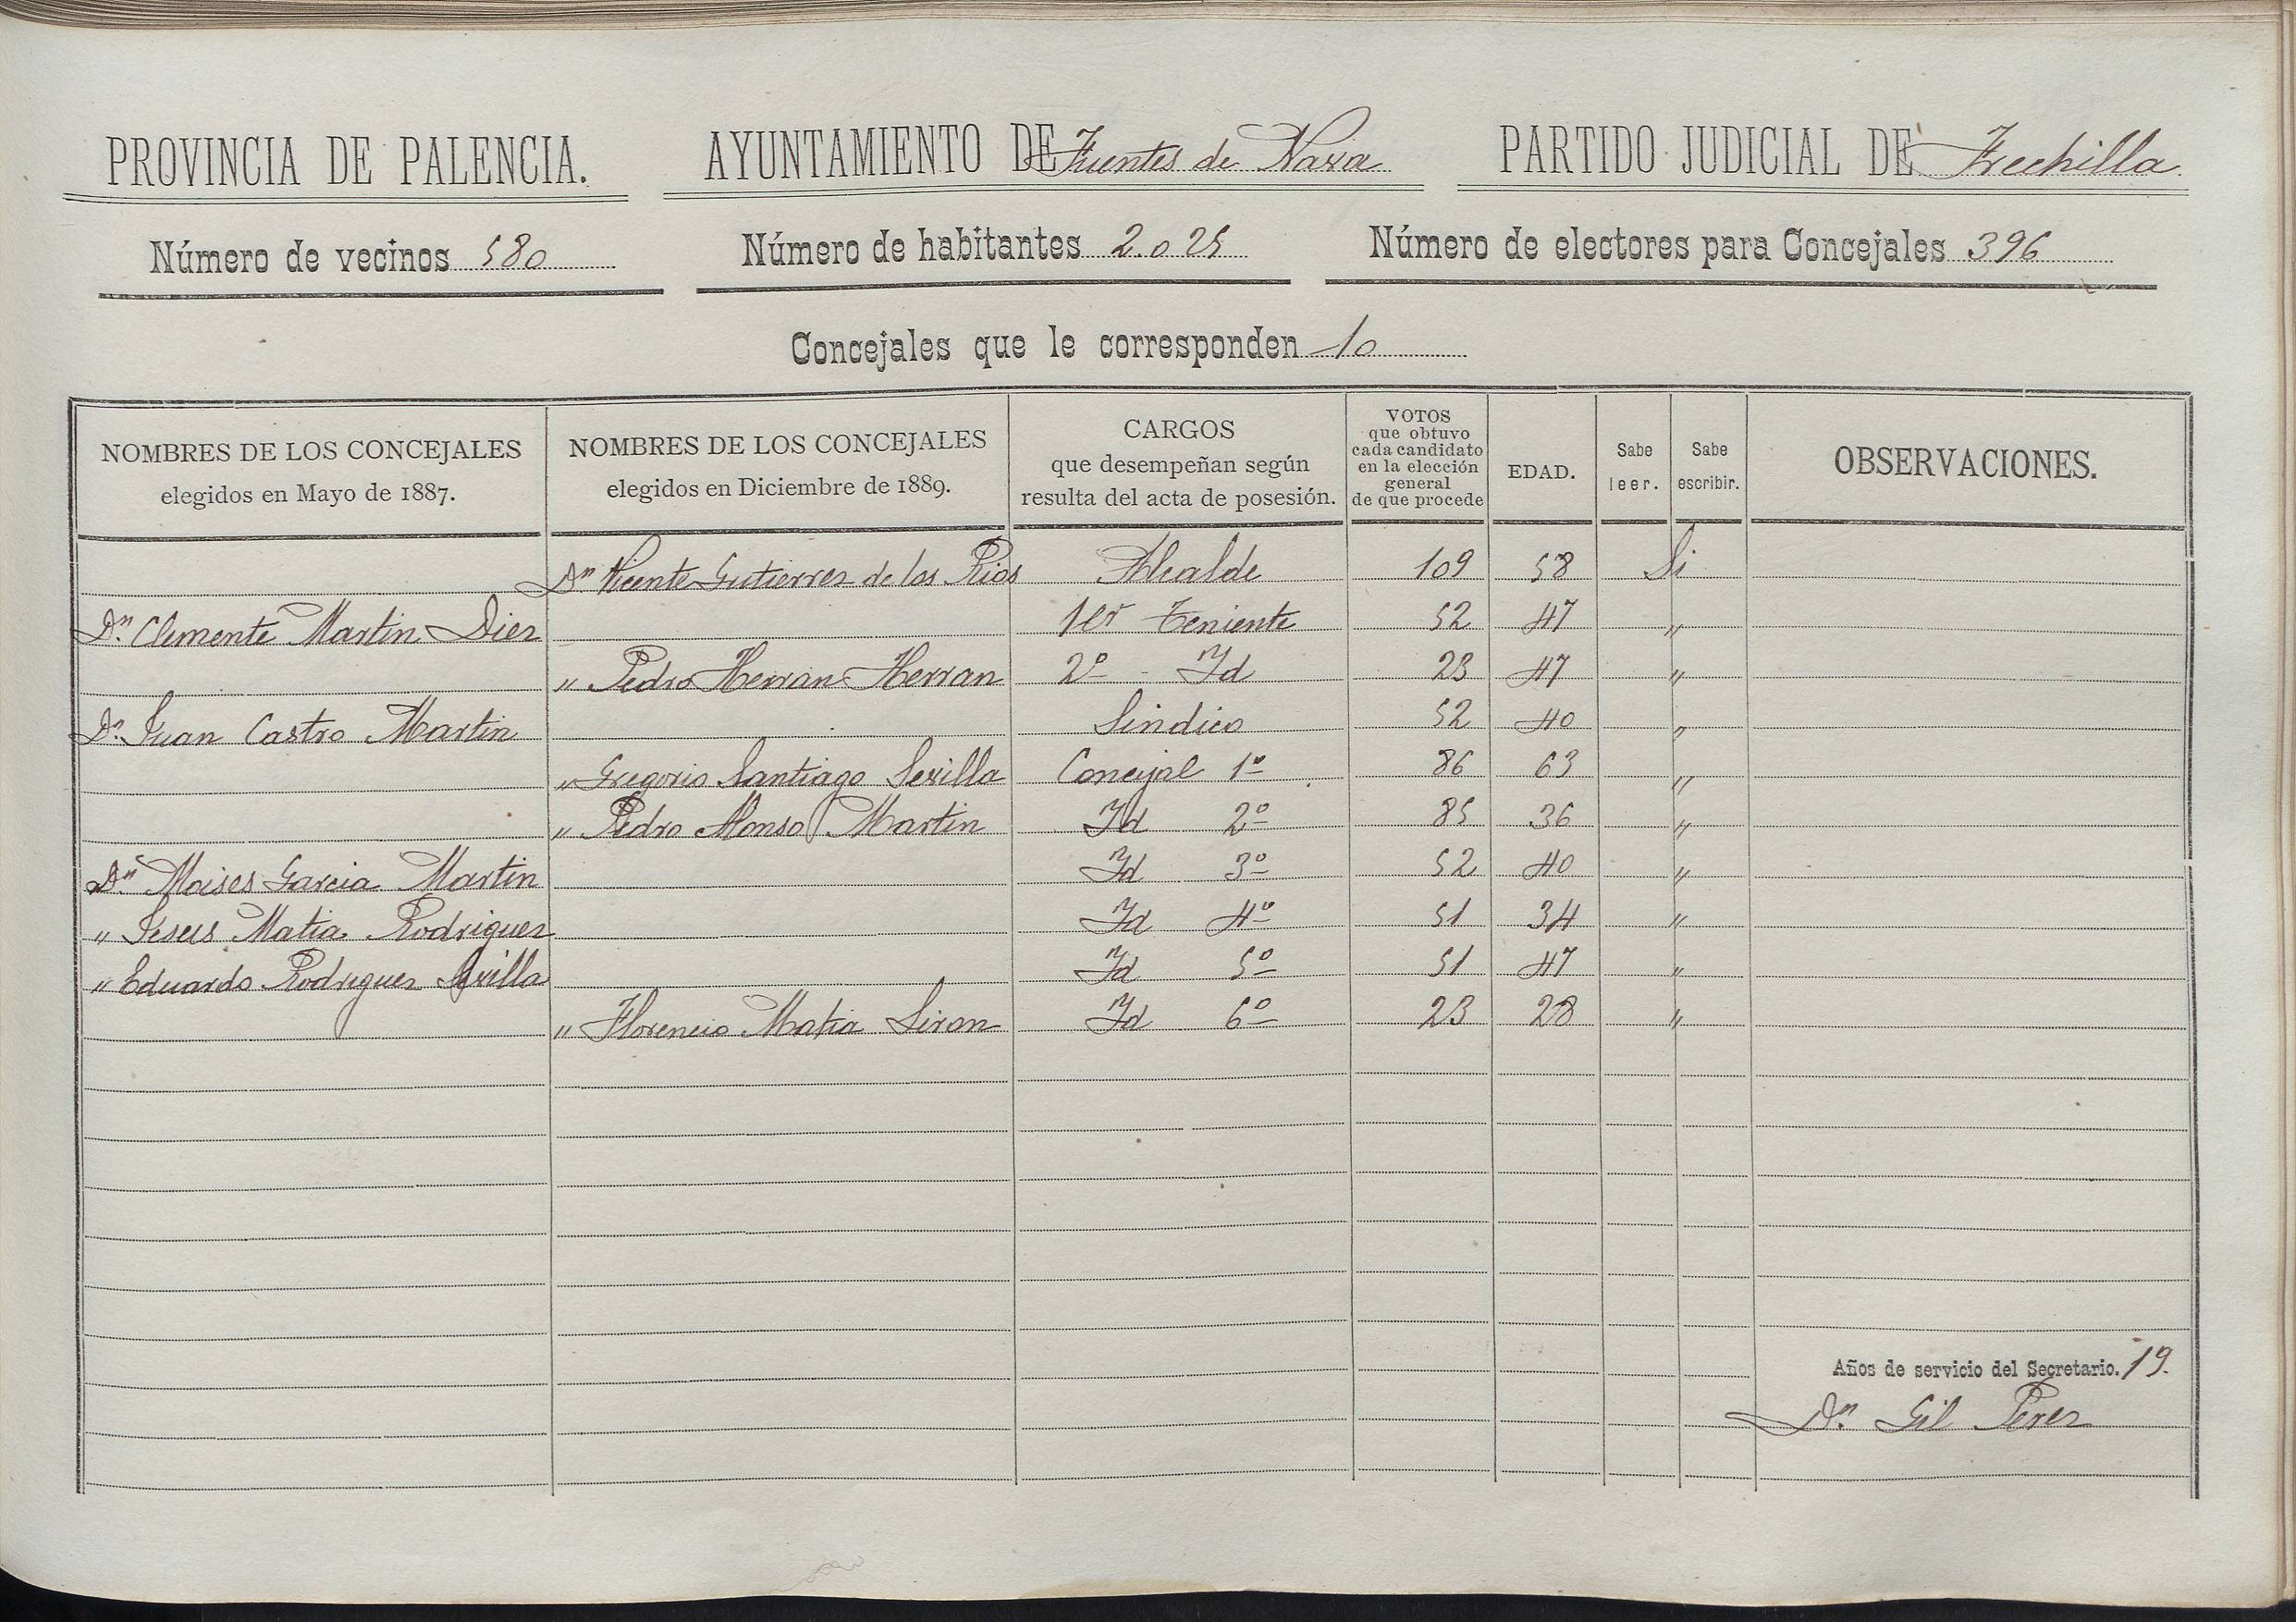 PROVINCIA DE PALENCIA. AYUNTAMIENTO DE Fuentes de Nava PARTIDO JUDICIAL DE Frechilla
Número de vecinos 580 Número de habitantes 2.025 Número de electores para Concejales 396
Concejales que le corresponden 10
NOMBRES DE LOS CONCEJALES elegidos en Mayo de 1887. NOMBRES DE LOS CONCEJALES elegidos en Diciembre de 1889. CARGOS que desempeñan según resulta del acta de posesión. VOTOS que obtuvo cada candidato en la elección general de que procede EDAD. Sabe leer. Sabe escribir. OBSERVACIONES.
Dn Vicente Gutierrez de los Rios Alcalde 109 58 Si
Dn. Clemente Martin Diez 1er Teniente 52 47 "
" Pedro Herran Herran 2º - Id 23 47 "
Dn. Juan Castro Martin Sindico 52 40 "
" Gregorio Santiago Sevilla Concejal 1º 86 63 "
" Pedro Alonso Martin Id 2º 85 36 "
Dn Moises Garcia Martin Id 3º 52 40 "
" Jesus Matia Rodriguez Id 4º 51 34 "
" Eduardo Rodriguez Sevilla Id 5º 51 47 "
" Florencio Matia Siron Id 6º 23 28 "
Años de servicio del Secretario. 19.
Dn. Gil Perez